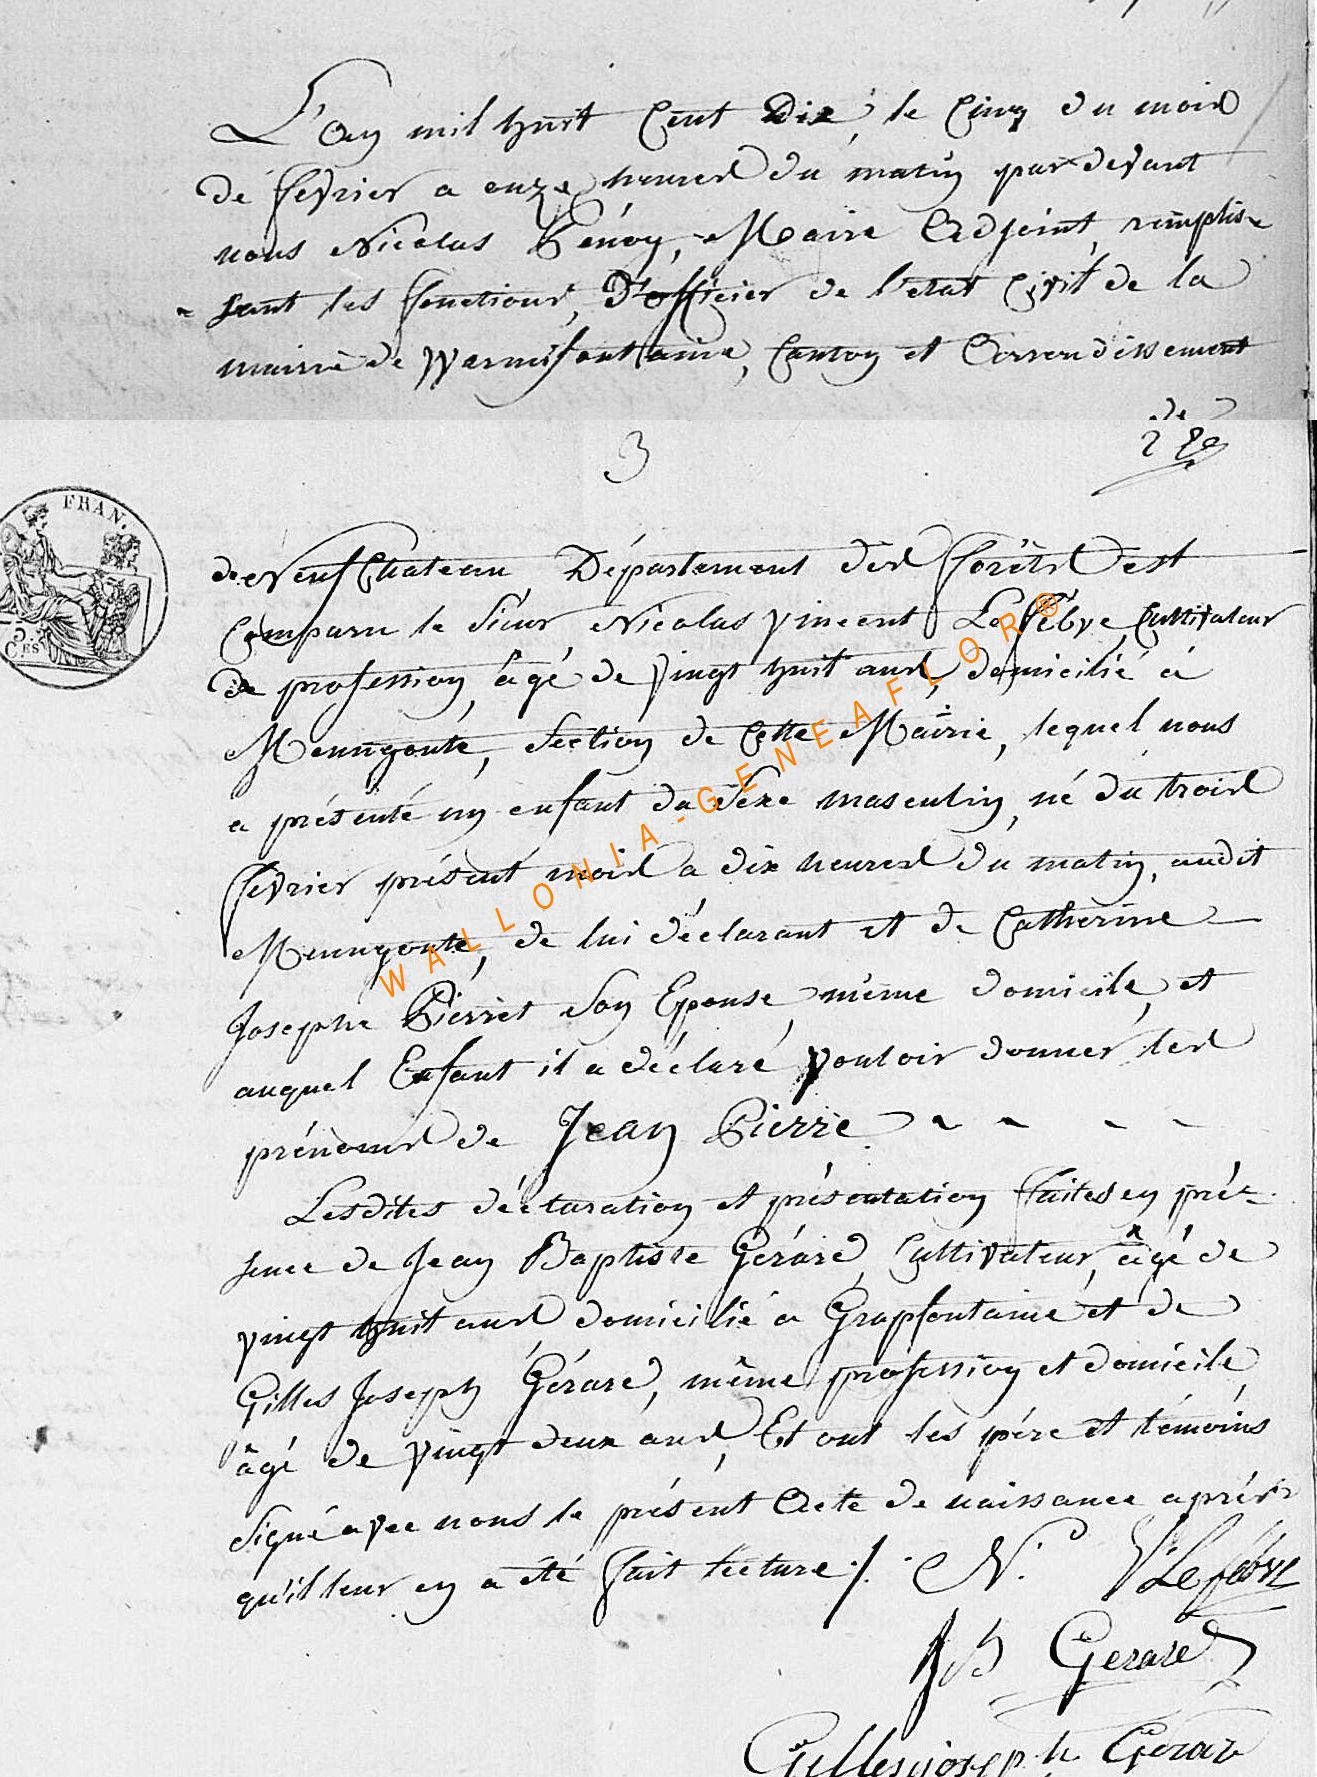 L'an mil huit Cent Dix, le Cinq du mois
de fevrier a onze heures du matin par devant
nous Nicolas Henoy, Maire Adjoint, remplis-
-sant les fonctions, D'officier de l'etat Civil de la
mairie de Warmifontaine, Canton et Arrondissement
de
3
de Neufchateau Département des forêts est
Comparu le Sieur Nicolas Vincent Lefébve Cultivateur
de profession, âgé de vingt huit ans, domicilié à
Menugoutte, Section de Cette Mairie, lequel nous
a présenté un enfant du Sexe masculin, né du trois
fevrier présent mois a dix heures du matin, audit
Menugoutte, de lui déclarant et de Catherine
Josephe Pierret Son Epouse même domicile, et
auquel Enfant il a déclaré vouloir donner les
prénoms de Jean Pierre
Lesdites déclaration et présentation faites en pré-
sence de Jean Baptiste Gérard, Cultivateur, âgé de
vingt huit ans domicilié a Grapfontaine et de
Gilles Joseph Gérard, même profession et domicile
âgé de vingt deux ans, Et ont les pére et témoins
Signé avec nous le présent Acte de naissance aprés
qu'il leur en a été fait lecture ./. N. V Lefébve
JB Gerard
Gillesjoseph Gerar
FRAN.
5
C.ES
WALLONIA-GENEAFLOR®